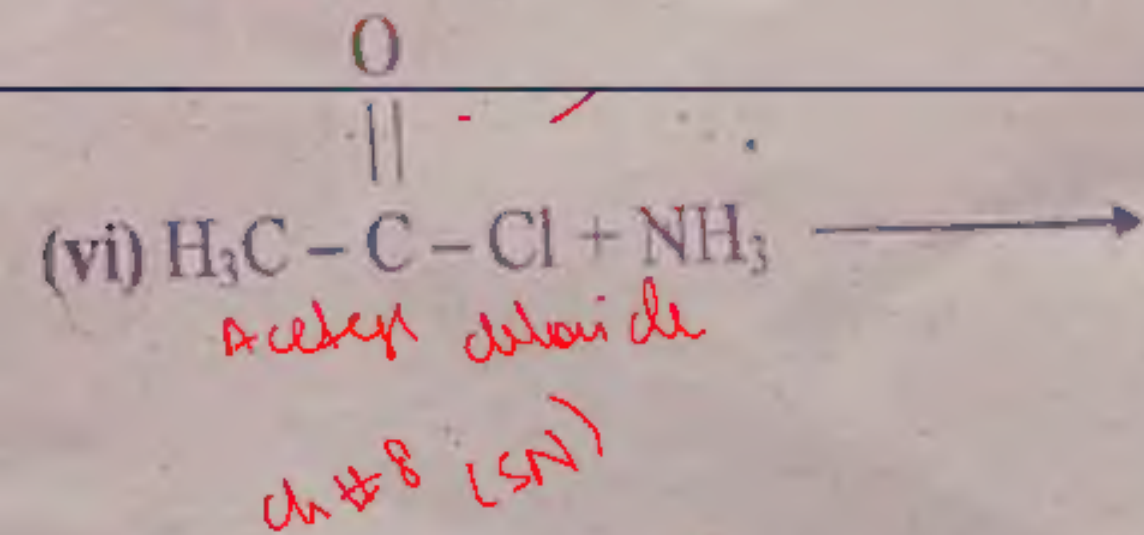 O
(vi) H₃C – C – Cl + NH₃ ⟶
Acetyl chloride
Ch # 8 (SN)